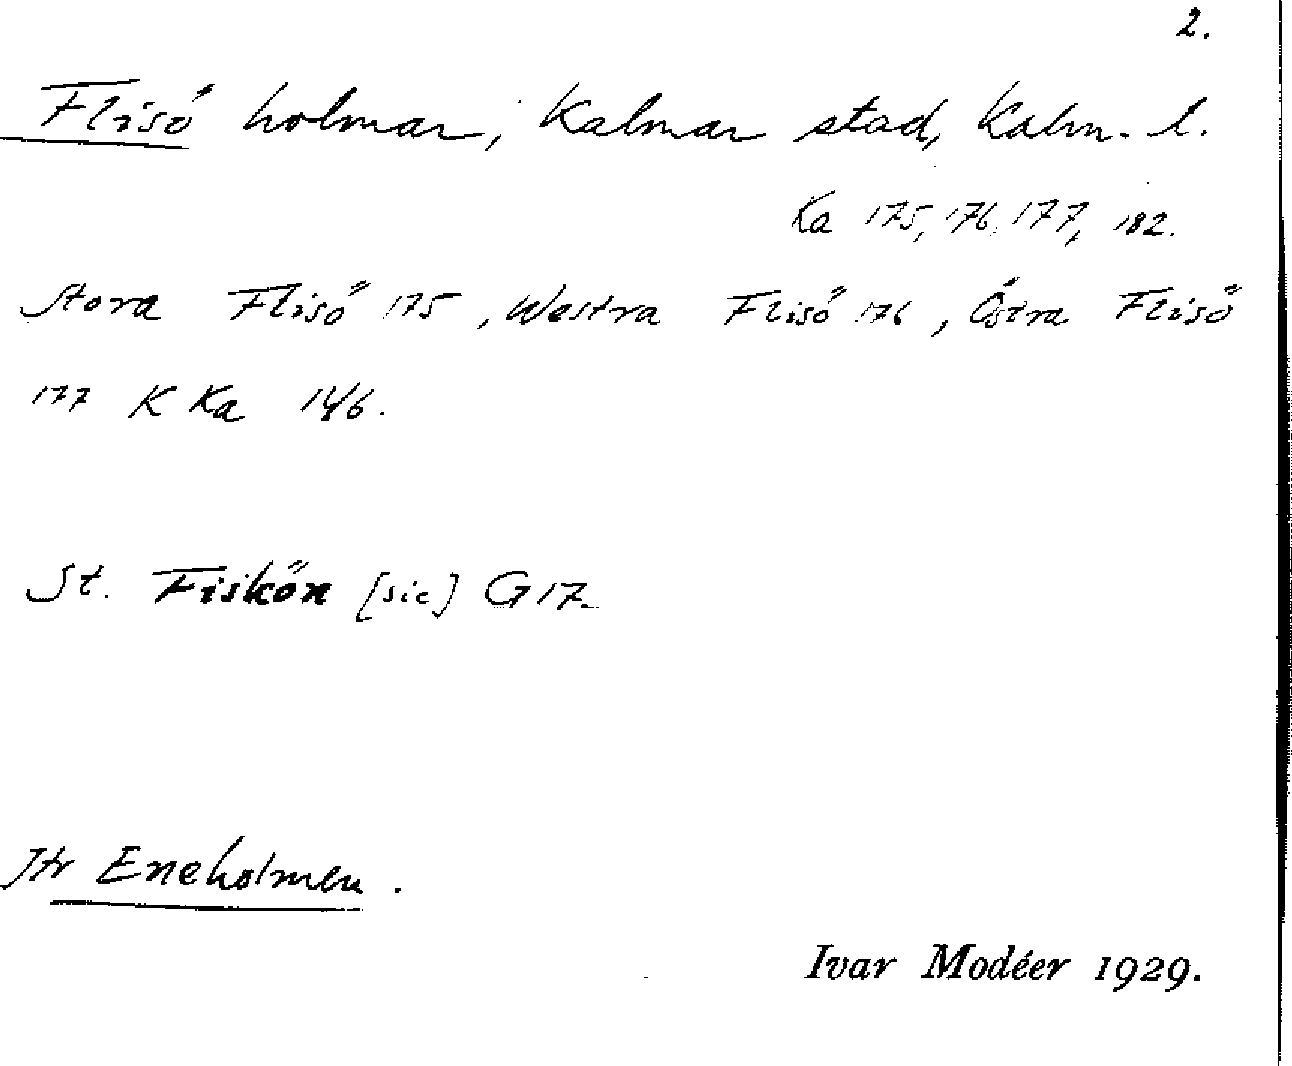 2.
Flisö holmar, Kalmar stad, Kalm. l.
Ka 175, 176, 177, 182.
Stora Flisö 175, Westra Flisö 176, Östra Flisö
177 K Ka
St. Fiskön [sic] G 17.
Jtr Eneholmen.
Ivar Modéer 1929.